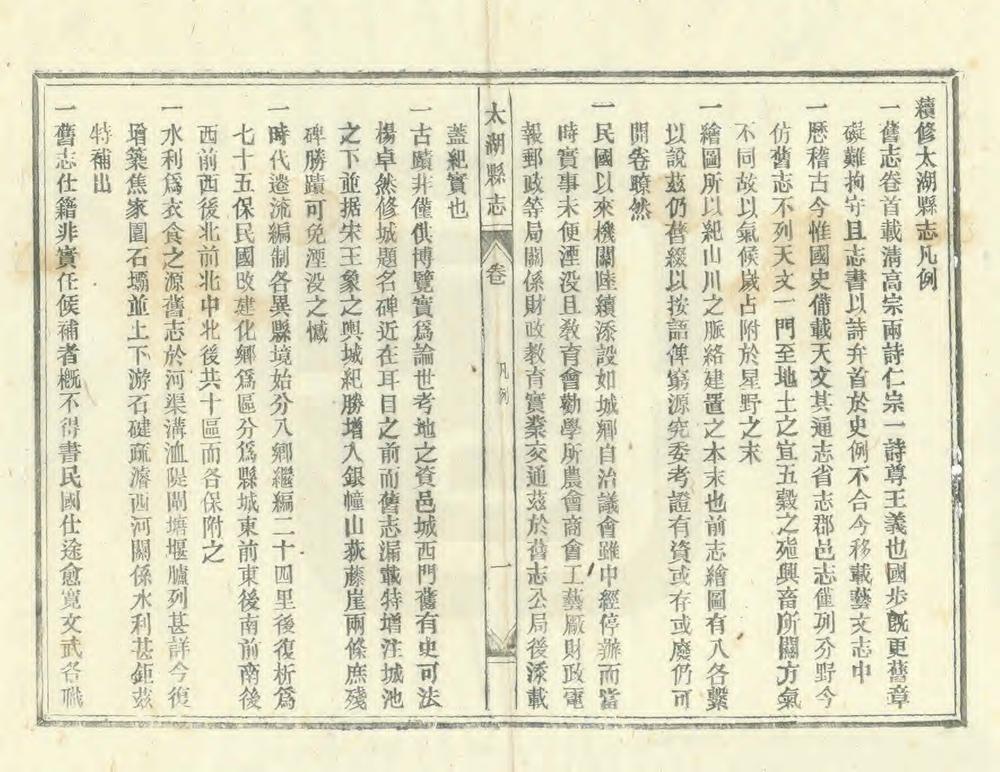 續修太湖縣志凡例
一舊志卷首載淸高宗兩詩仁宗一詩尊王義也國步旣更舊章
礙難拘守且志書以詩弁首於史例不合今移載藝文志中
一歷稽古今惟國史備載天文其通志省志郡邑志僅列分野今
仿舊志不列天文一門至地土之宜五穀之殖興畜所關方氣
不同故以氣候歲占附於星野之末
一繪圖所以紀山川之脈絡建置之本末也前志繪圖有八各繫
以說茲仍舊綴以按語俾窮源究委考證有資或存或廢仍可
開卷瞭然
一民國以來機關陸續添設如城鄉自治議會雖中經停辦而當
時實事未便湮没且敎育會勸學所農會商會工藝廠財政電
報郵政等局關係財政敎育實業交通茲於舊志公局後添載
太湖縣志
卷
凡例
一
蓋紀實也
一古蹟非僅供博覽實爲論世考地之資邑城西門舊有史可法
楊卓然修城題名碑近在耳目之前而舊志漏載特增注城池
之下並据宋王象之輿城紀勝增入銀幢山荻藤崖兩條庶殘
碑勝蹟可免湮没之憾
一時代遞流編制各異縣境始分八鄉繼編二十四里後復析爲
七十五保民國改建化鄉爲區分爲縣城東前東後南前南後
西前西後北前北中北後共十區而各保附之
一水利爲衣食之源舊志於河渠溝洫隄閘塘堰臚列甚詳今復
增築焦家圍石壩並上下游石磏疏濬西河關係水利甚鉅茲
特補出
一舊志仕籍非實任候補者槪不得書民國仕途愈寬文武各職